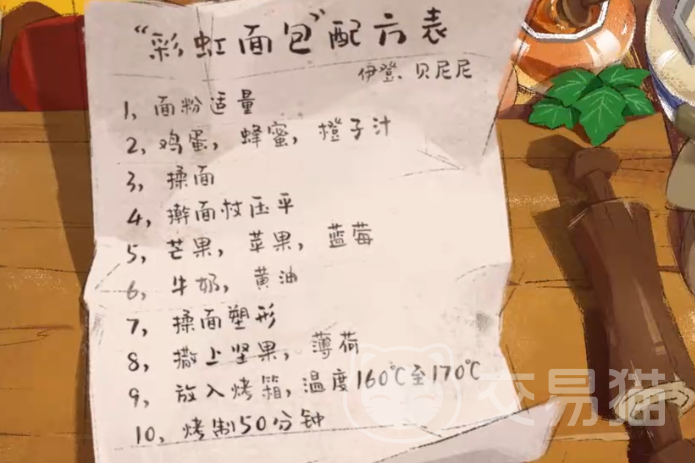 “彩虹面包”配方表
伊登、贝尼尼
1, 面粉适量
2, 鸡蛋, 蜂蜜, 橙子汁
3, 揉面
4, 擀面杖压平
5, 芒果, 苹果, 蓝莓
6, 牛奶, 黄油
7, 揉面塑形
8, 撒上坚果, 薄荷
9, 放入烤箱, 温度160℃至170℃
10, 烤制50分钟
交易猫